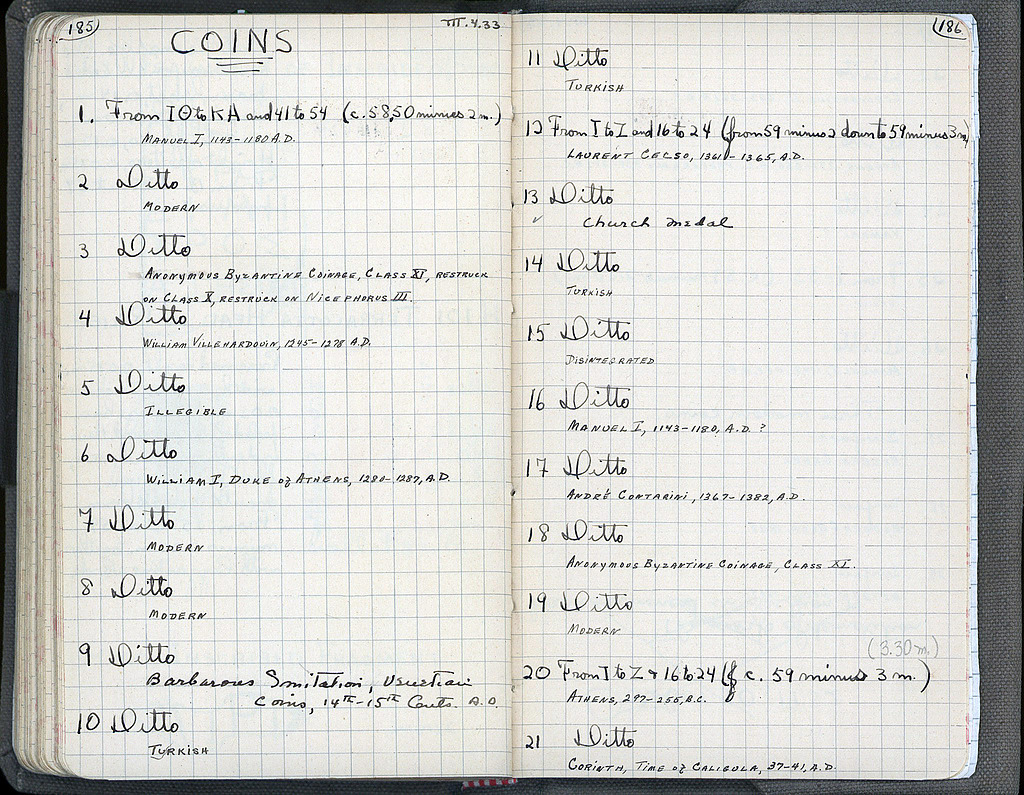 185
III.4.33
COINS
1. From ΙΘ to ΚΑ and 41 to 54 (c. 58,50 minus 2 m.)
MANUEL I, 1143-1180 A.D.
2 Ditto
MODERN
3 Ditto
ANONYMOUS BYZANTINE COINAGE, CLASS XI, RESTRUCK
ON CLASS X, RESTRUCK ON NICEPHORUS III.
4 Ditto
WILLIAM VILLEHARDOUIN, 1245-1278 A.D.
5 Ditto
ILLEGIBLE
6 Ditto
WILLIAM I, DUKE of ATHENS, 1280-1287, A.D.
7 Ditto
MODERN
8 Ditto
MODERN
9 Ditto
Barbarous Imitation, Venetian
Coins, 14TH-15TH Cents. A.D.
10 Ditto
TURKISH
186
11 Ditto
TURKISH
12 From I to Z and 16 to 24 (from 59 minus 2 down to 59 minus 3 m)
LAURENT CELSO, 1361-1365, A.D.
13 Ditto
✓ Church medal
14 Ditto
TURKISH
15 Ditto
DISINTEGRATED
16 Ditto
MANUEL I, 1143-1180, A.D. ?
17 Ditto
ANDRÉ CONTARINI, 1367-1382, A.D.
18 Ditto
ANONYMOUS BYZANTINE COINAGE, CLASS XI.
19 Ditto
MODERN
(3.30 m.)
20 From I to Z + 16 to 24 (c. 59 minus 3 m.)
ATHENS, 297-255, B.C.
21 Ditto
CORINTH, TIME of CALIGULA, 37-41, A.D.